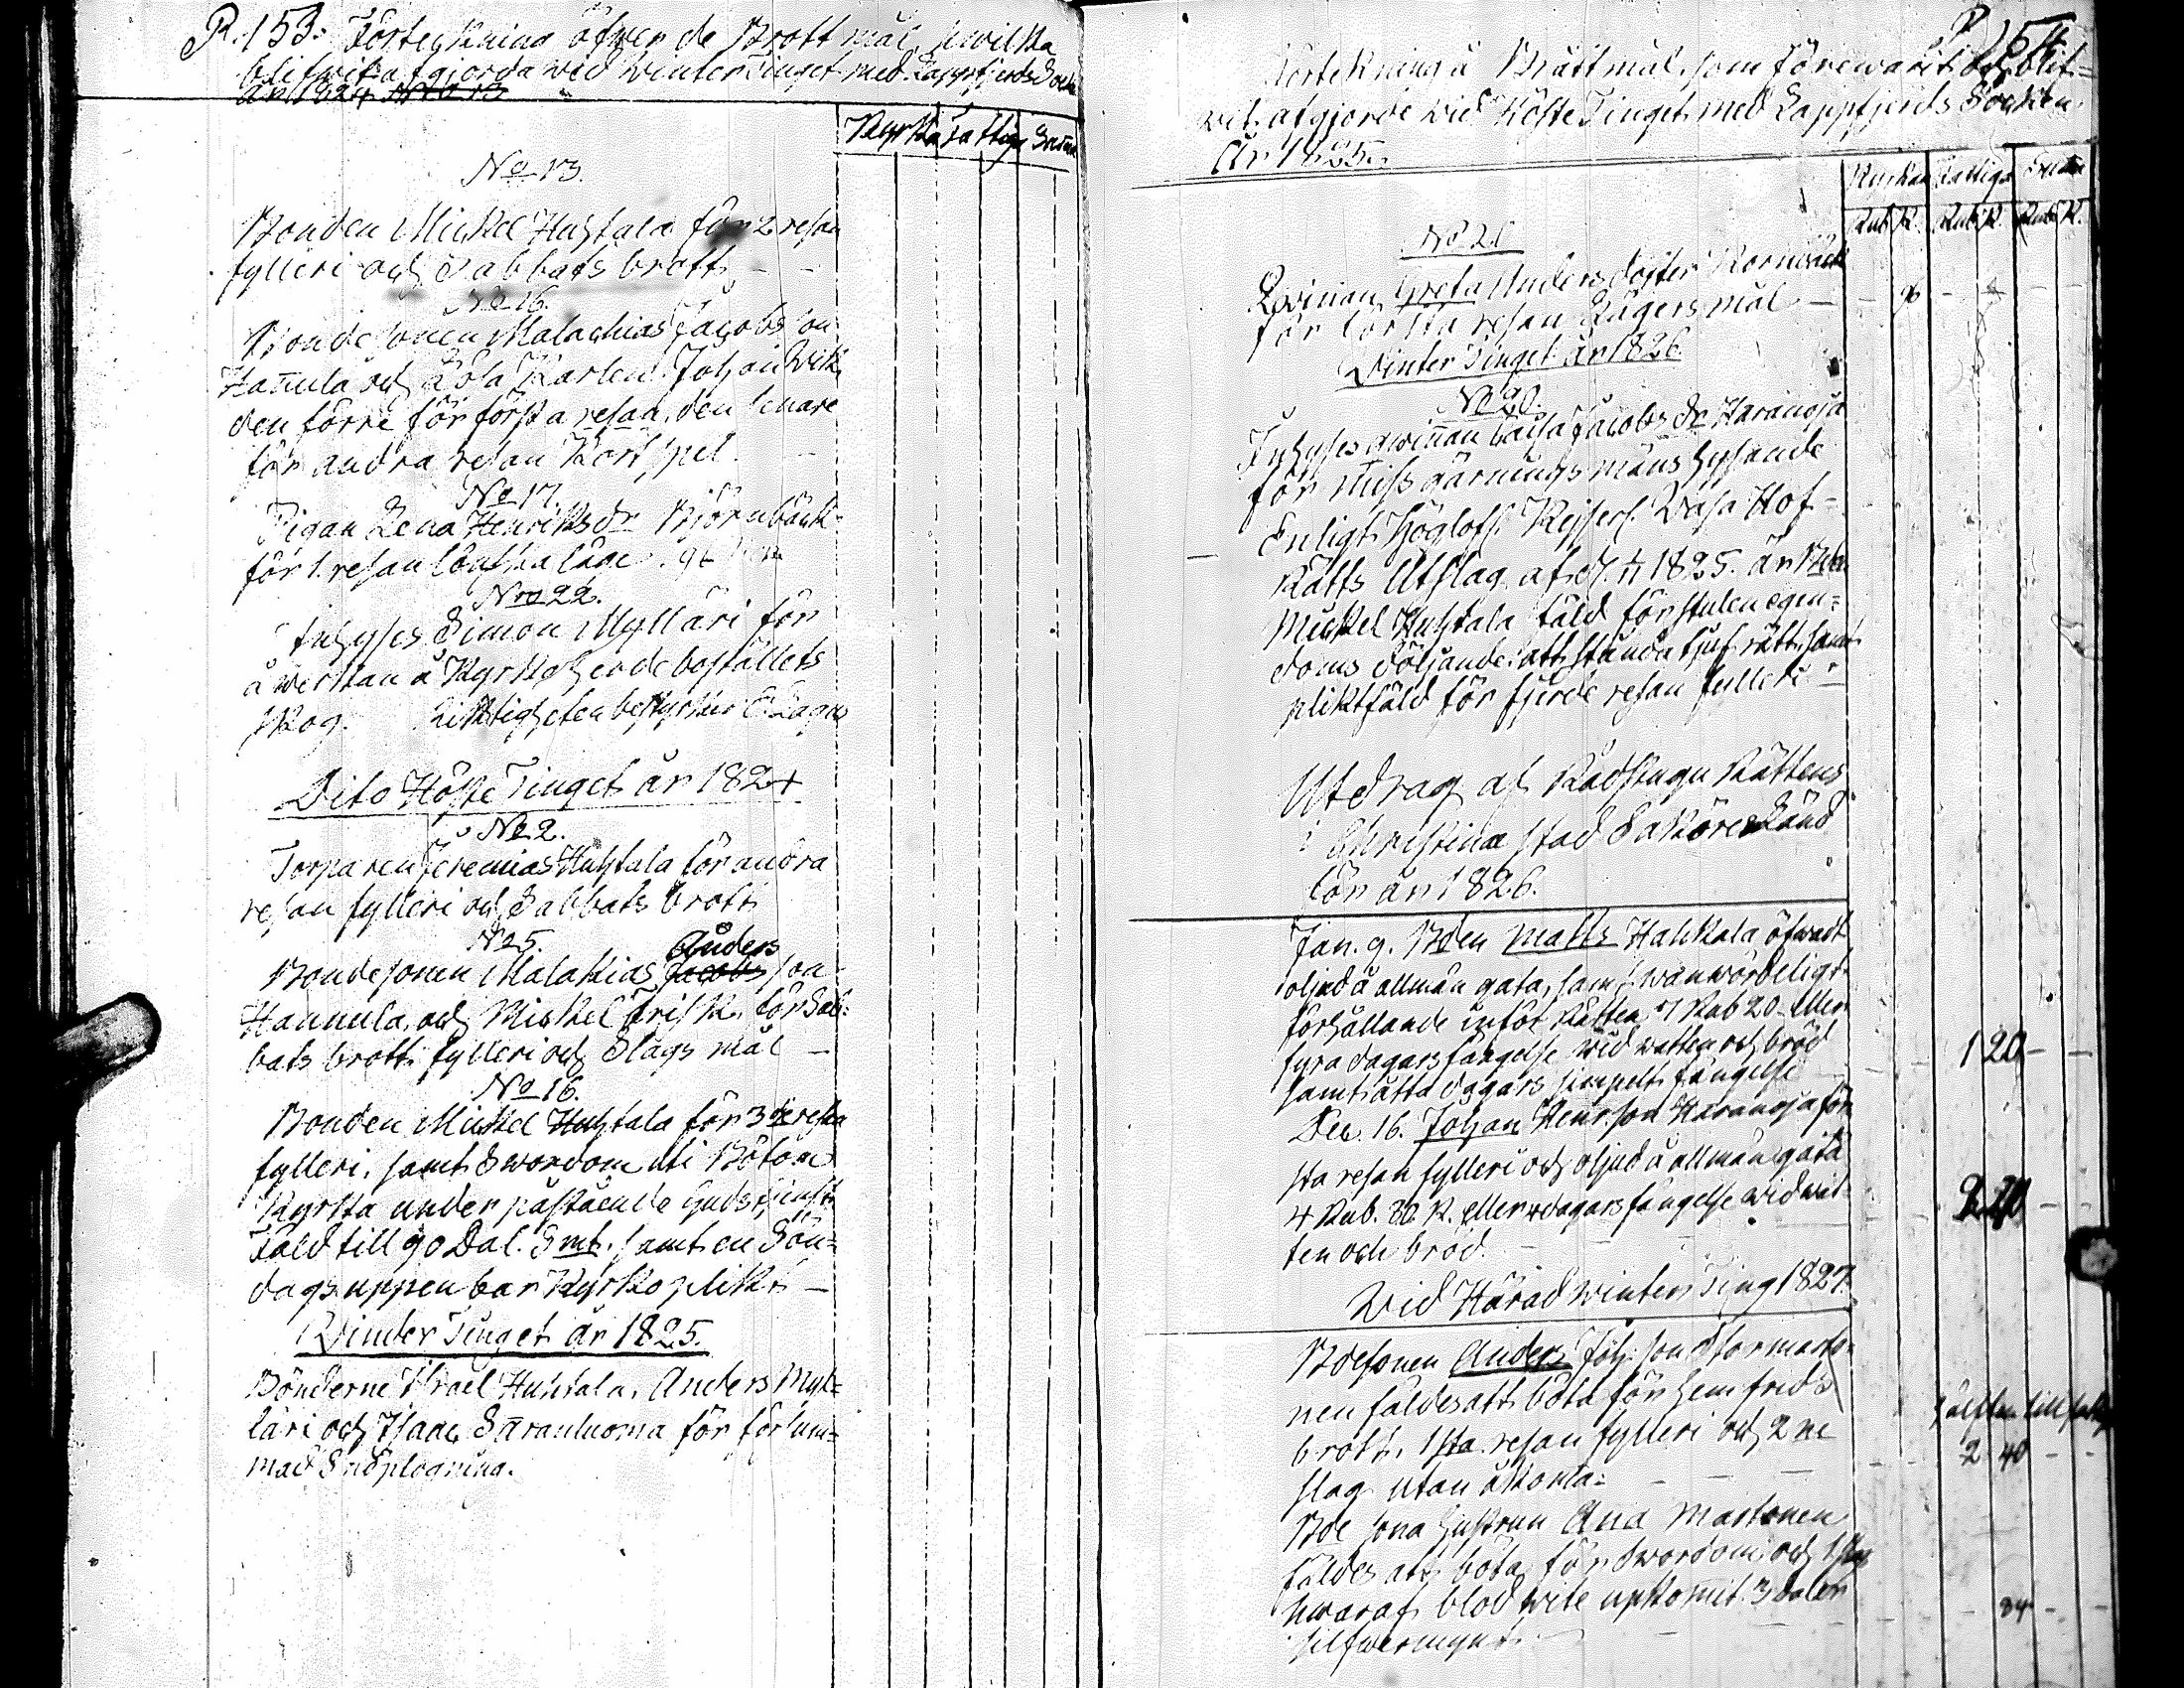 P. 153. Förtekning öfwer de Brottmål, hwilka
blifwit afgjorda wid Winter Tinget med Lappfjerds Sockn
år 1824. No 13
Kyrkan fattiga
No 13.
Bonden Mickel Huhtala för 2 resan
fylleri och Sabbats brott
No 16.
Bondesonen Malachias Jacobsson
Hannula och Karlen Johan Wik
den förre för första resan, den senare
för andra resan Kortspel.
No 17.
Pigan Lena Henriksdr Björnbäck
för 1. resan lönska läge. 96
Nro 22.
Inhyses Simon Mylläri för
åwerkan å Kyrkoherdebostållets
skog. Riktigheten bestyrker
Dito Höste Tinget år 1824
No 2.
Torparen Jeremias Huhtala för andra
resan fylleri och Sabbats brott
No 5.
Anders
Bondesonen Malakias Jacobsson
Hannula, och Mickel Frisk, för Sab=
bats brott fylleri och Slags mål –
No 16.
Bonden Mickel Huhtala för 3dje resan
fylleri, samt Swordom uti Bötom
Kyrka under påstående Gudstjenst
Fäld till 90 Dal. Smt. samt en Sön=
dags uppenbar Kyrkoplikt –
Winter Tinget år 1825.
Bönderne Israel Huhtala, Anders Myl=
läri och Isaac Säranluoma för försum=
mad Snöplogning.
P. 154
Förtekning å Brättmål, som förewarit och blif=
wit afgjorde wid Höste Tinget med Lappfjerds Socken
År 1825.
Kyrkan Fattiga
Rub K. Rub K. Rub K.
No 21
Qwinnan Greta Andersdoter Kornbäck
för första resan Lägersmål – 96
Winter Tinget år 1826.
No 20.
Inhyses qwinnan Caisa Jacobsdr Haranoja
för Missgärningsmans hysande
Enligt Höglofl. Kejserl. Wasa Hof=
Rätts Utslag af d. 1825. är Bden
Mickel Huhtala fäld för stulen egen=
doms döljande: att stånda tjufrätt, samt
pliktfäld för fjerde resan fylleri –
Utdrag af Rådstugu Rättens
i Christinæstad Saköreslängd
för år 1826.
Jan. 9. Bden Matts Hahkala öfwadt
oljud å allmän gata, samt wanwördeligt
förhållande inför Rätten, 7 Rub 20 eller
fyra dagars fängelse wid watten och bröd
samt åtta dagars simpelt fängelse 1 20
Dec. 16. Johan Henr.son Haranoja för
sta resan fylleri och oljud å allmän gata
4 Rub. 80 K. eller 4 dagars fängelse wid wat
ten och bröd.
Wid Härad winter Ting 1827.
Bdesonen Anders Joh.son
nen fäldes att böta för hemfrids
brott, 1sta resan fylleri och 2ne
hälften till
slag utan åkoma= 2 40
Bdesona hustrun Ana Martonen
fäldes att böta för Swordom och 1
hwaraf blodwite upkommit 3 daler 84
silfwermynt.